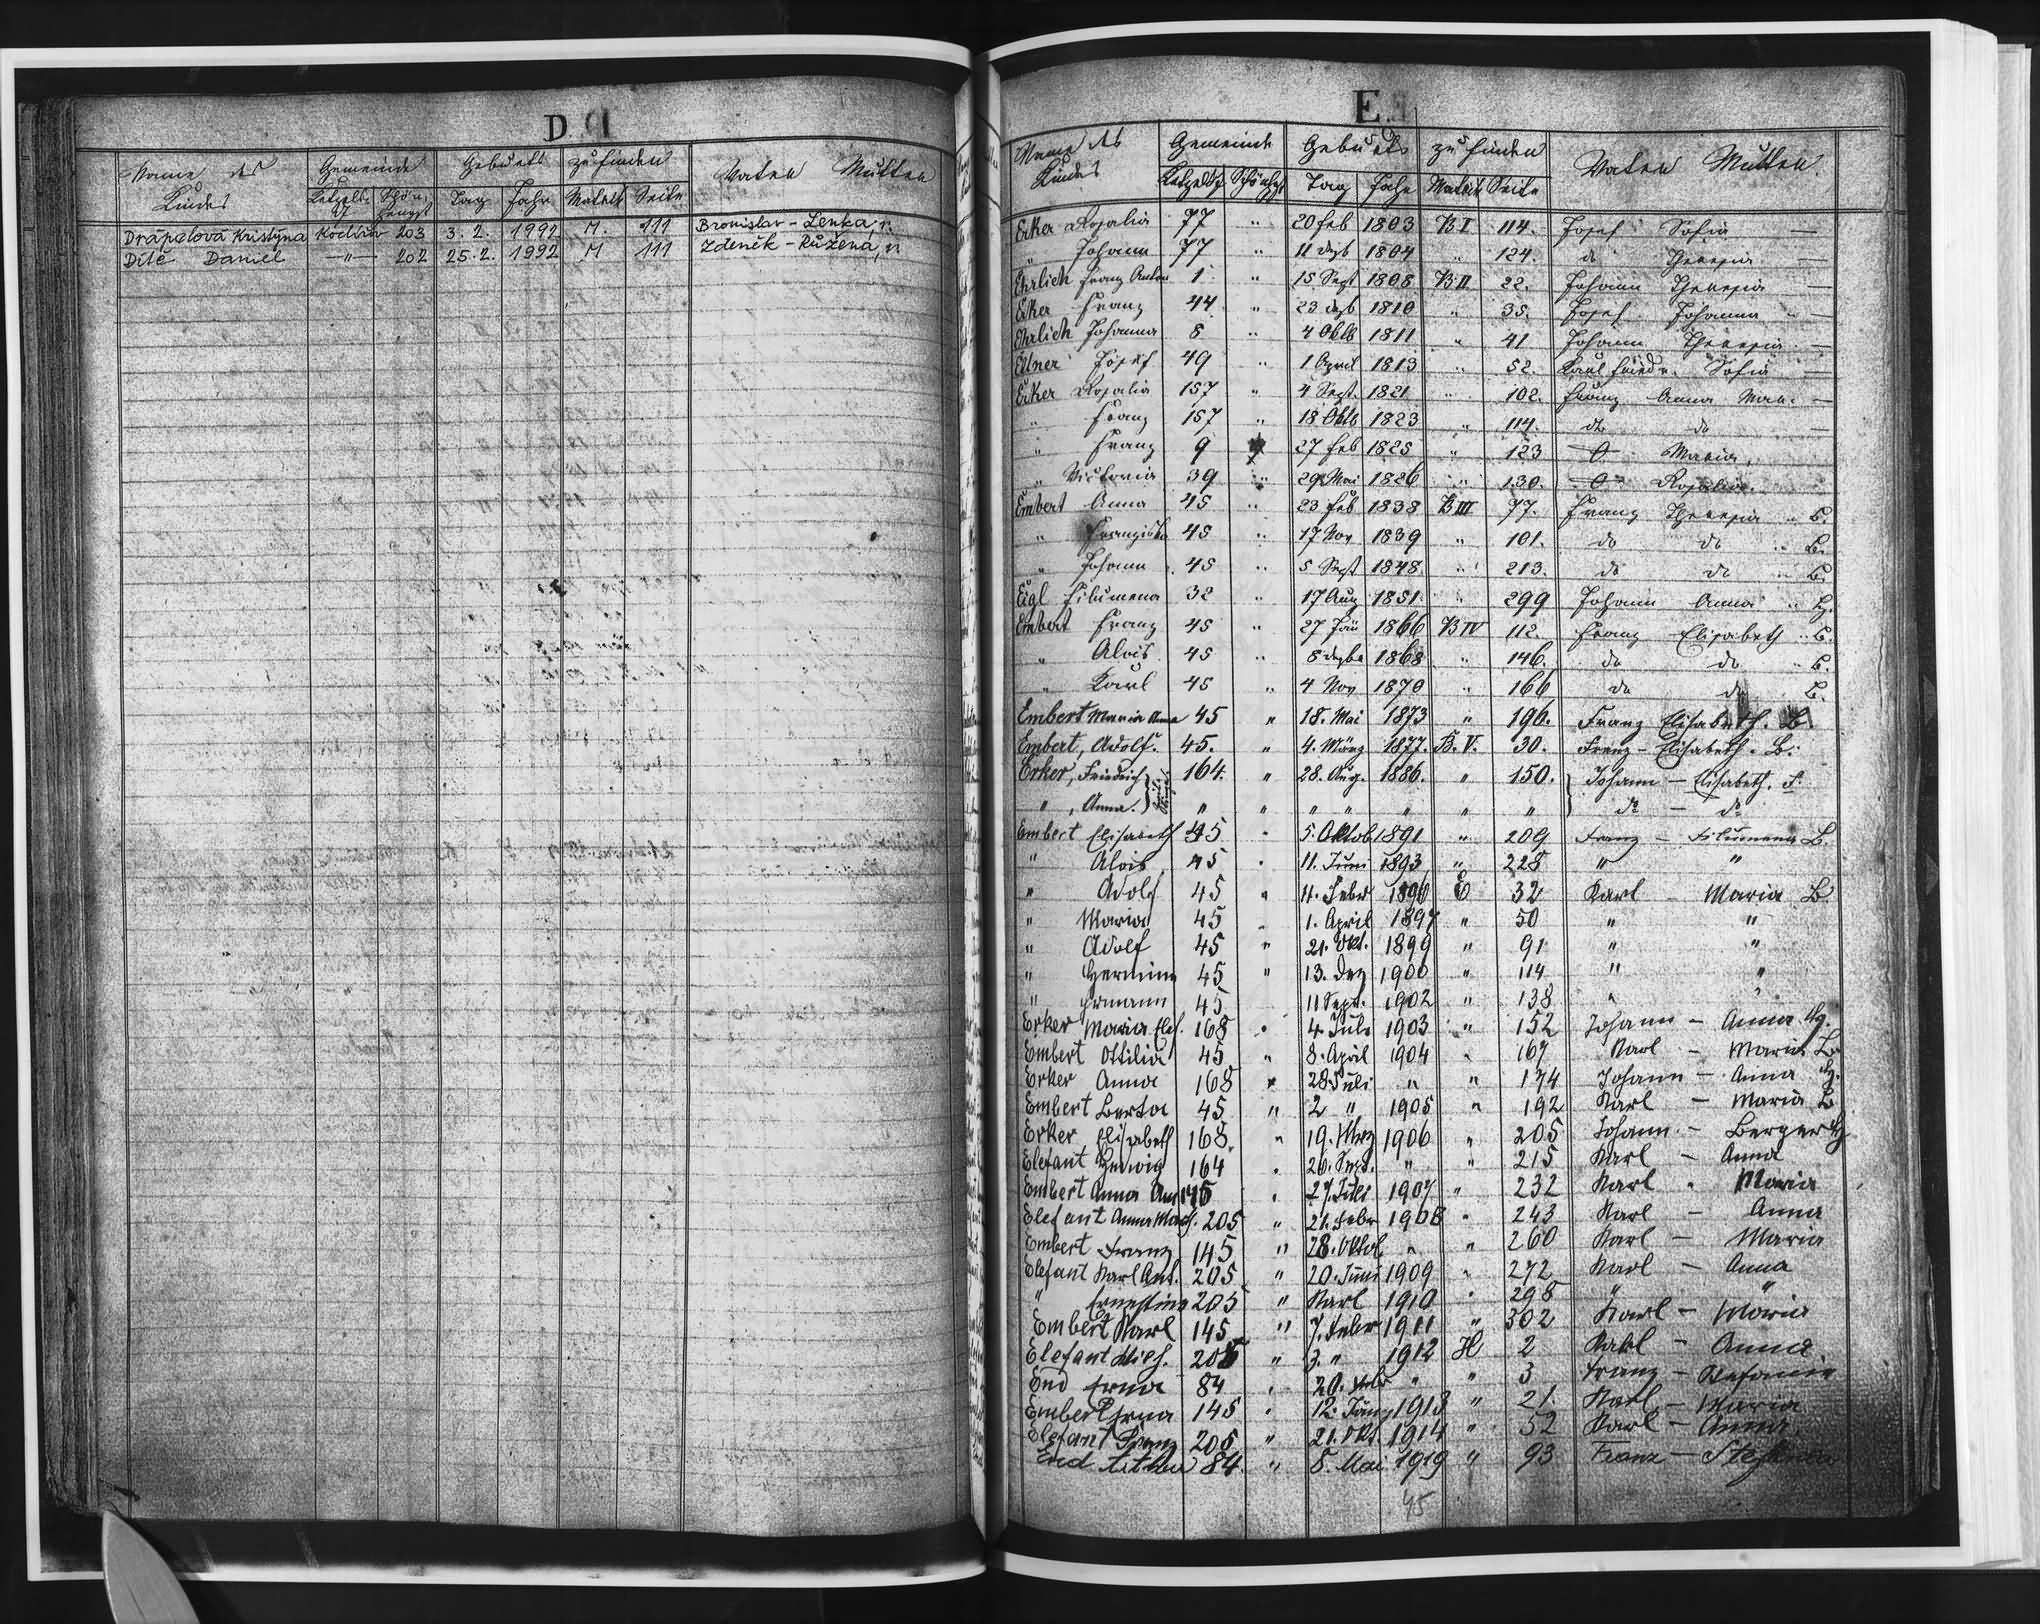 D
Name des Kindes Gemeinde Geburts zu finden Vater Mutter
Tag Jahr Matrik Seite
Drápelová Kristýna Koclířov 203 3. 2. 1992 M. 111 Bronislav - Lenka r.
Dítě Daniel —"— 202 25. 2. 1992 M 111 Zdeněk - Růžena, r.
E
Name des Kindes Gemeinde Geburts zu finden Vater Mutter.
Ketzelsdf Schönhgst Tag Jahr Matrik Seite
Erker Rosalia 77 " 20 Feb 1803 B I 114. Josef Sofia —
" Johann 77 " 11 Dezb 1804 " 124. do Theresia —
Ehrlich Franz Anton 1 " 15 Sept 1808 B II 22. Johann Theresia —
Erker Franz 44 " 23 Dezb 1810 " 35. Josef Johanna —
Ehrlich Johanna 8 " 4 Oktb 1811 " 41 Johann Theresia —
Josef 49 " 1 April 1813 " 52. Karl Friedr. Sofia —
Erker Rosalia 157 " 4 Sept. 1821 " 102. Franz Anna Mar. —
" Franz 157 " 18 Oktb 1823 " 114. do do —
" Franz 9 27 Feb 1825 " 123 O Maria,
" Victoria 39 " 29 Mai 1826 " 130. O Rosalia.
Embert Anna 45 " 23 Feb 1838 B III 77. Franz Theresia " B.
" Franziska 45 " 17 Nov 1839 " 101. do do " B.
" Johann 45 " 5 Sept 1848 " 213. do do " B.
Eigl Filumena 32 " 17 Aug 1851 " 299 Johann Anna "
Embert Franz 45 " 27 Jän 1866 B IV 112. Franz Elisabeth " B.
" Alois 45 " 8 Dezbr 1868 " 146. do do " B.
" Karl 45 " 4 Nov 1870 " 166 do do B.
Embert Maria Anna 45 " 18. Mai 1873 " 196. Franz Elisabeth. B.
Embert, Adolf. 45. " 4. März 1877. B. V. 30. Franz - Elisabeth. B.
Erker, Friedrich 164. " 28. Aug. 1886. " 150. Johann — Elisabeth. F.
" , Anna. " " " " " " " do — do
Embert Elisabeth 45 " 5. Oktob 1891 " 209 Franz — Filumena B.
" Alois 45 " 11. Juni 1893 " 228 " "
" Adolf 45 " 11. Febr 1896 32 Karl - Maria B
" Maria 45 " 1. April 1897 " 50 " "
" Adolf 45 " 21. Okt. 1899 " 91 " "
" Hermine 45 " 13. Dez 1900 " 114 " "
" 45 11 Sept. 1902 " 138 " "
Erker Maria 168 " 4. Juli 1903 " 152 Johann — Anna
Embert Ottilia 45 " 8. April 1904 " 167 Karl — Maria B
Erker Anna 168 " 28. Juli " " 174 Johann — Anna
Embert Berta 45 " 2 " 1905 " 192 Karl — Maria B
Erker Elisabeth 168. " 19. März 1906 " 205 Johann — Berger
Elefant Hedwig 164 " 26. Sept. " " 215 Karl — Anna
Embert Anna 145 " 27. Juli 1907 " 232 Karl " Maria
Elefant Anna 205 " 21. Febr 1908 " 243 Karl — Anna
Embert Franz 145 " 28. Oktob " " 260 Karl — Maria
Elefant Karl Ant. 205 " 20. Juni 1909 " 272 Karl — Anna
" Ernestine 205 " Karl 1910 " 298 " "
Embert Karl 145 " 7. Febr 1911 " 302 Karl — Maria
Elefant 205 " 3. " 1912 H 2 Karl — Anna
End Erna 84 " 20. " " 3 Franz — Stefanie
Embert Erna 145 " 12. Jänn 1913 " 21. Karl — Maria
Elefant Franz 205 " 21. Okt. 1914 " 52 Karl — Anna
End 84 " 8. Mai 1919 " 93 Franz —
45